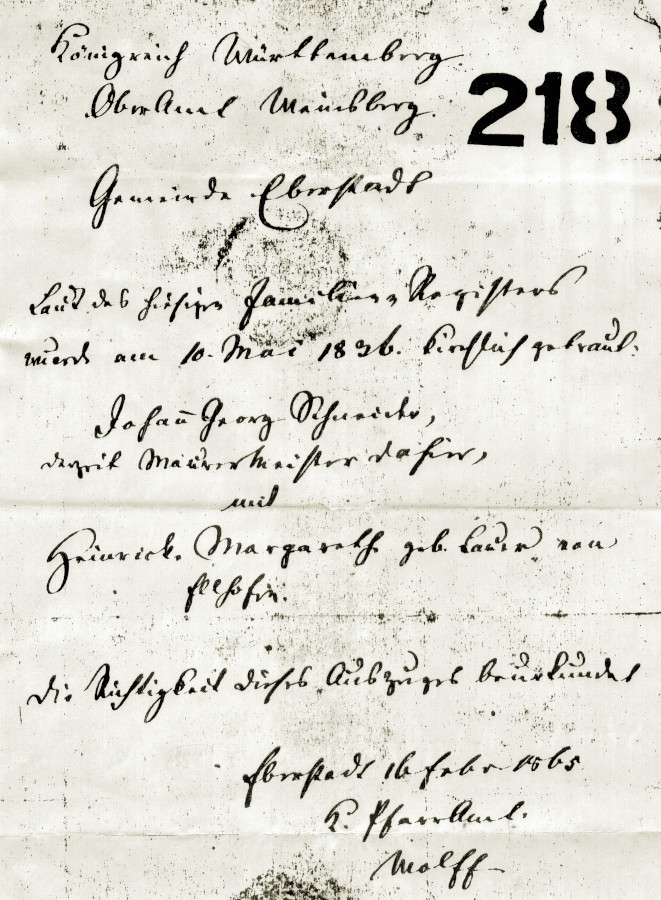 Königreich Württemberg.
OberAmt Weinsberg.
218
Gemeinde Eberstadt
Laut des hiesigen Familien-Registers
wurde am 10. Mai 1836. kirchlich getraut:
Johann Georg Schneider,
derzeit Maurermeister dahier,
mit
Heinricke Margarethe geb. Lauer von
Ellhofen.
Die Richtigkeit dieses Auszuges beurkundet
Eberstadt 16 Febr 1865
K. PfarrAmt.
Wolff